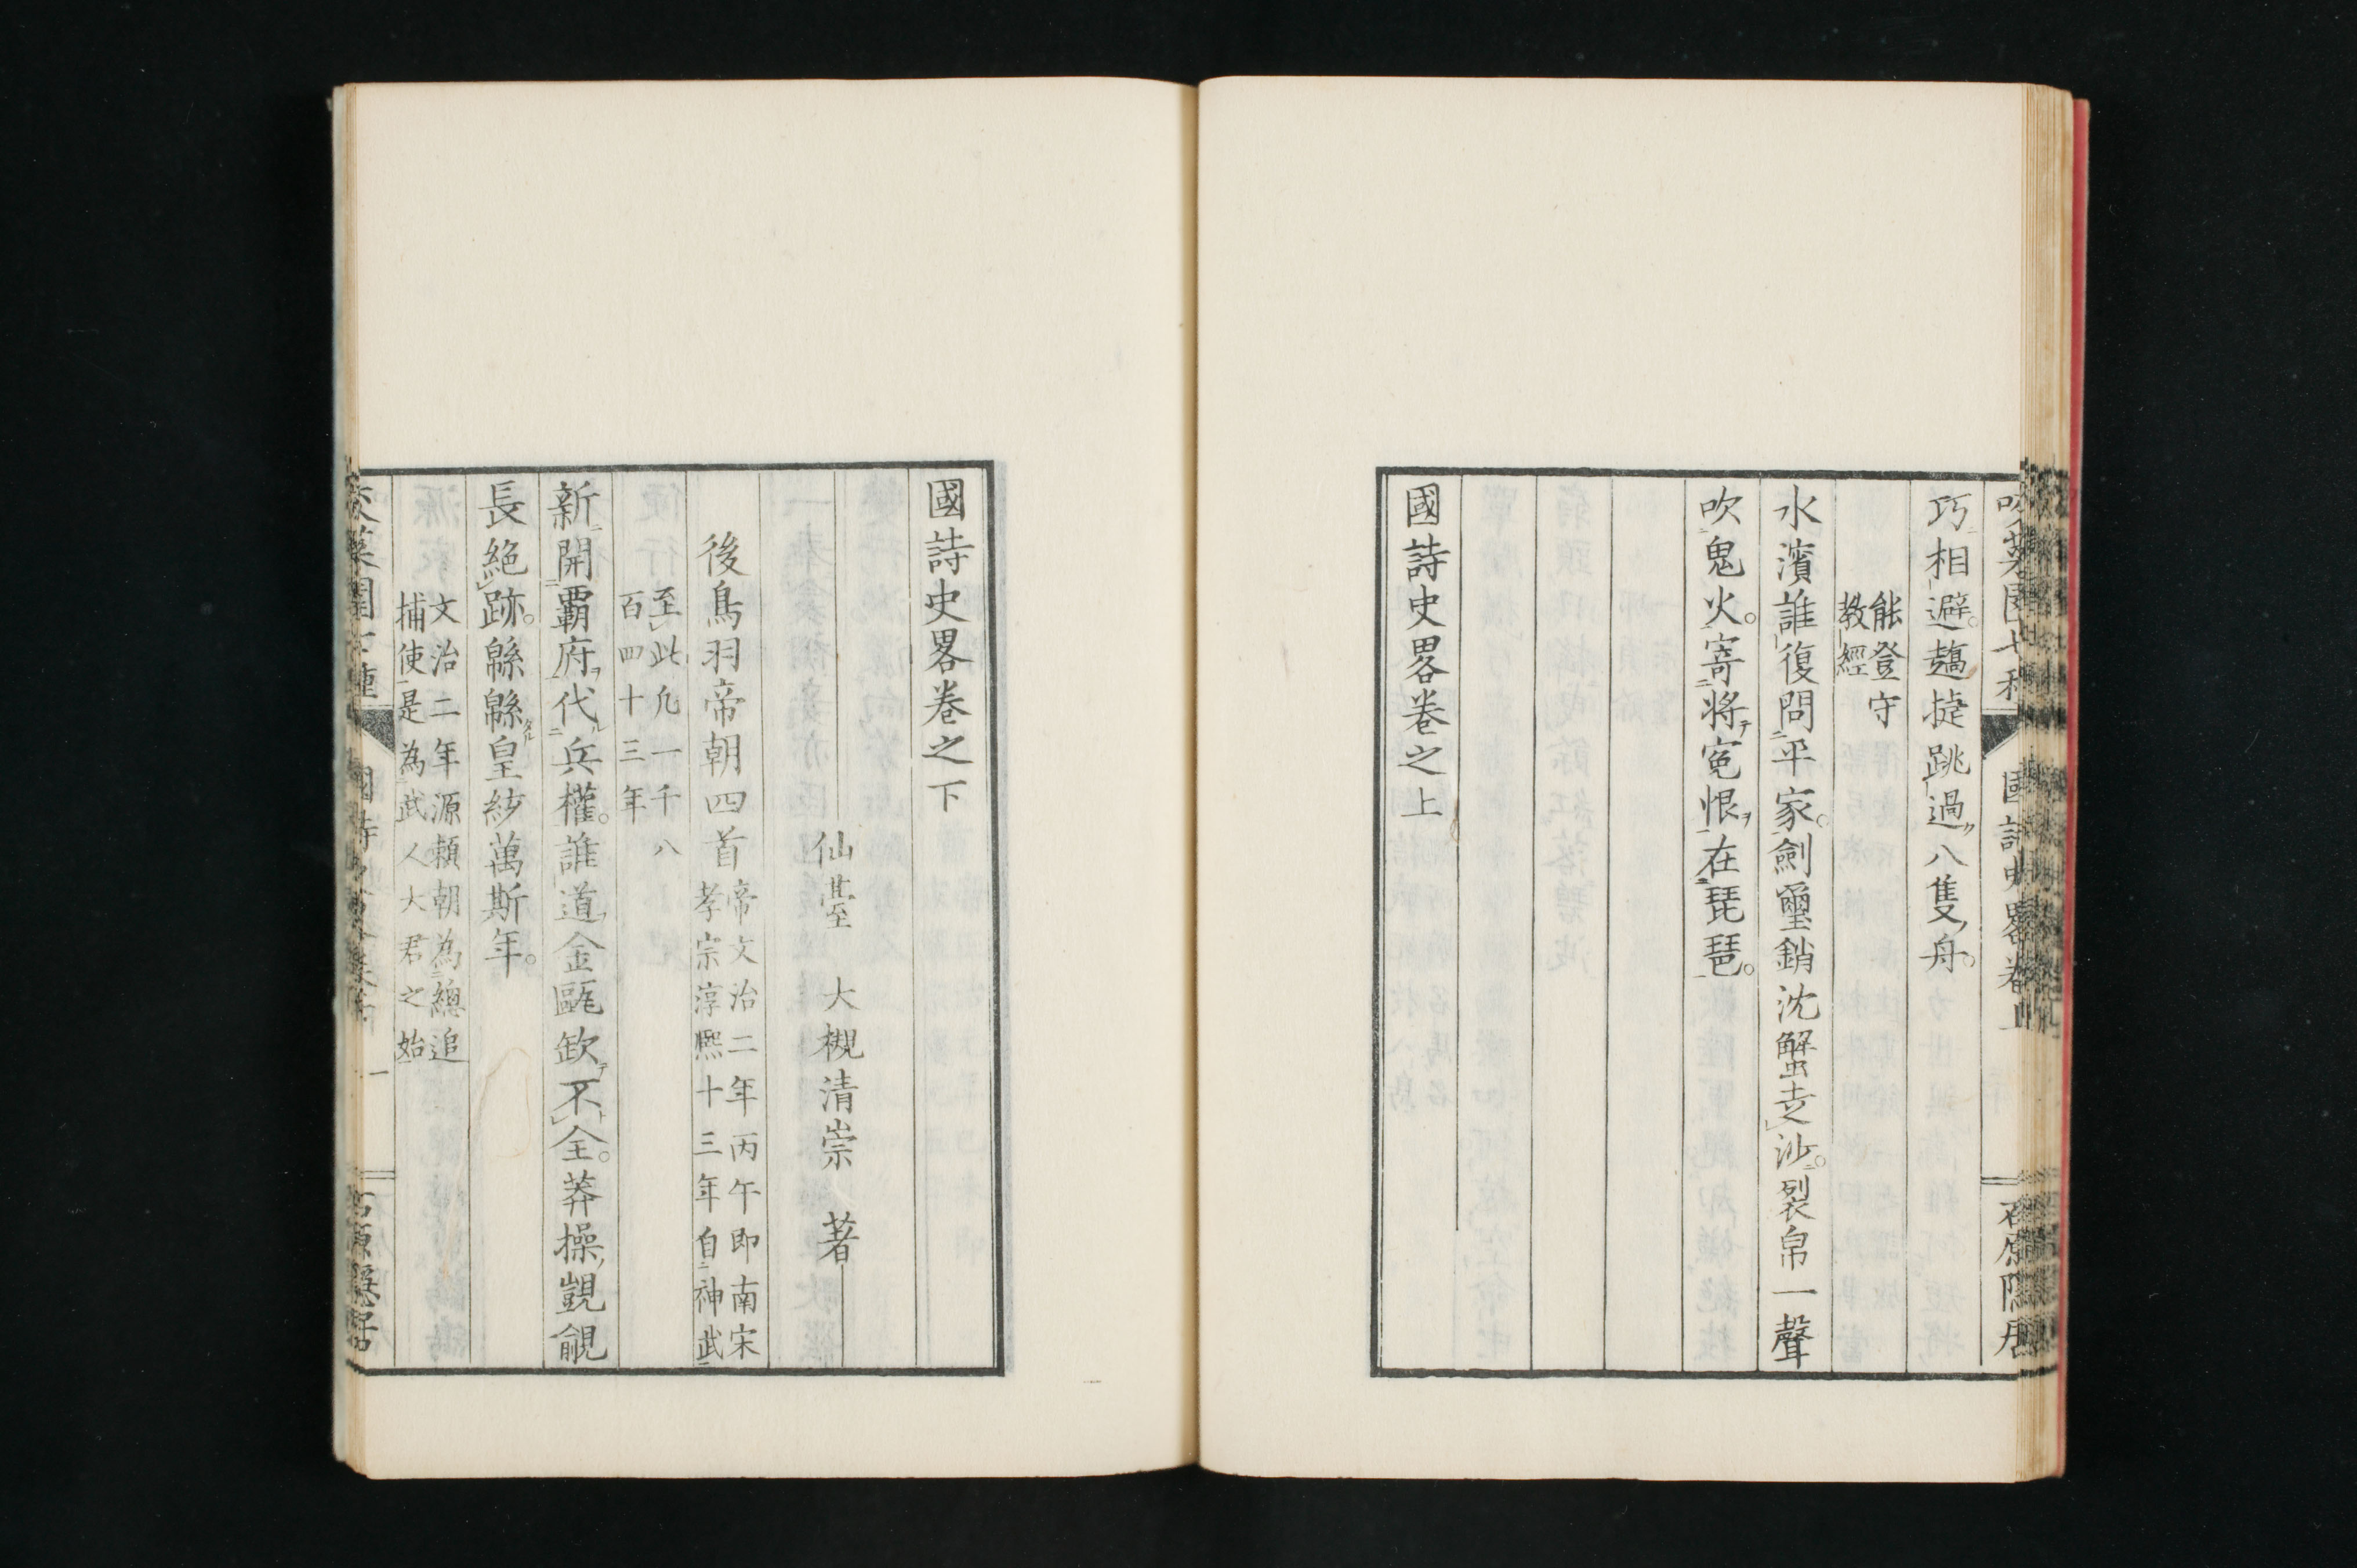 巧相避。趫捷跳過八隻舟。
能登守
教經
水濱誰復問平家。劍璽銷沈蟹走沙。裂帛一聲
吹鬼火。寄將寃恨在琵琶。
國詩史畧卷之上
國詩史畧卷之下
仙臺　大槻清崇　著
後鳥羽帝朝四首
帝文治二年丙午即南宋
孝宗淳熙十三年自神武
至此凡一千八
百四十三年
新開覇府代兵權。誰道金甌欽不全。莽操覬覦
長絕跡。緜緜皇紗萬斯年。
文治二年源頼朝為總追
捕使是為武人大君之始
國詩史畧卷
一